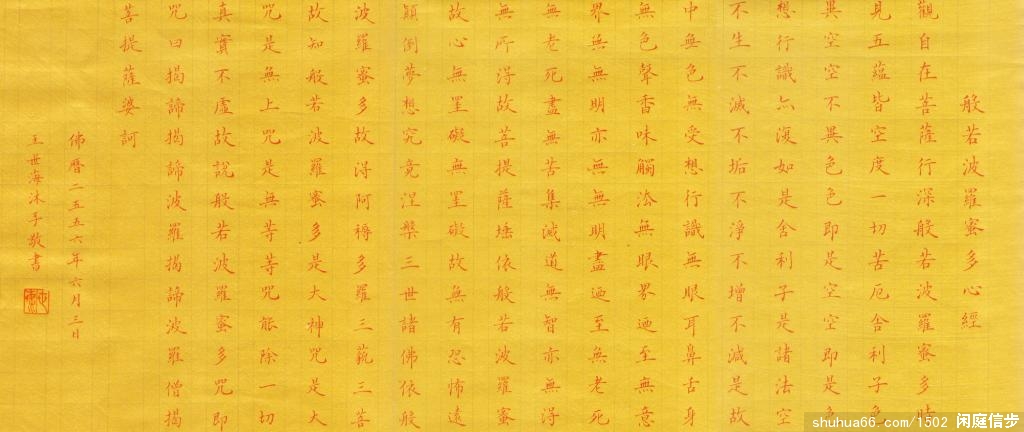 般若波羅蜜多心經
觀自在菩薩行深般若波羅蜜多時
見五蘊皆空度一切苦厄舍利子色
異空空不異色色即是空空即是色
想行識亦復如是舍利子是諸法空
不生不滅不垢不淨不增不減是故
中無色無受想行識無眼耳鼻舌身
無色聲香味觸法無眼界迺至無意
界無無明亦無無明盡迺至無老死
無老死盡無苦集滅道無智亦無得
無所得故菩提薩埵依般若波羅蜜
故心無罣礙無罣礙故無有恐怖遠
顛倒夢想究竟涅槃三世諸佛依般
波羅蜜多故得阿耨多羅三藐三菩
故知般若波羅蜜多是大神咒是大
咒是無上咒是無等等咒能除一切
真實不虛故說般若波羅蜜多咒即
咒曰揭諦揭諦波羅揭諦波羅僧揭
菩提薩婆訶
佛曆二五五六年六月三日
王世海沐手敬書
shuhua66.com/1502 闲庭信步